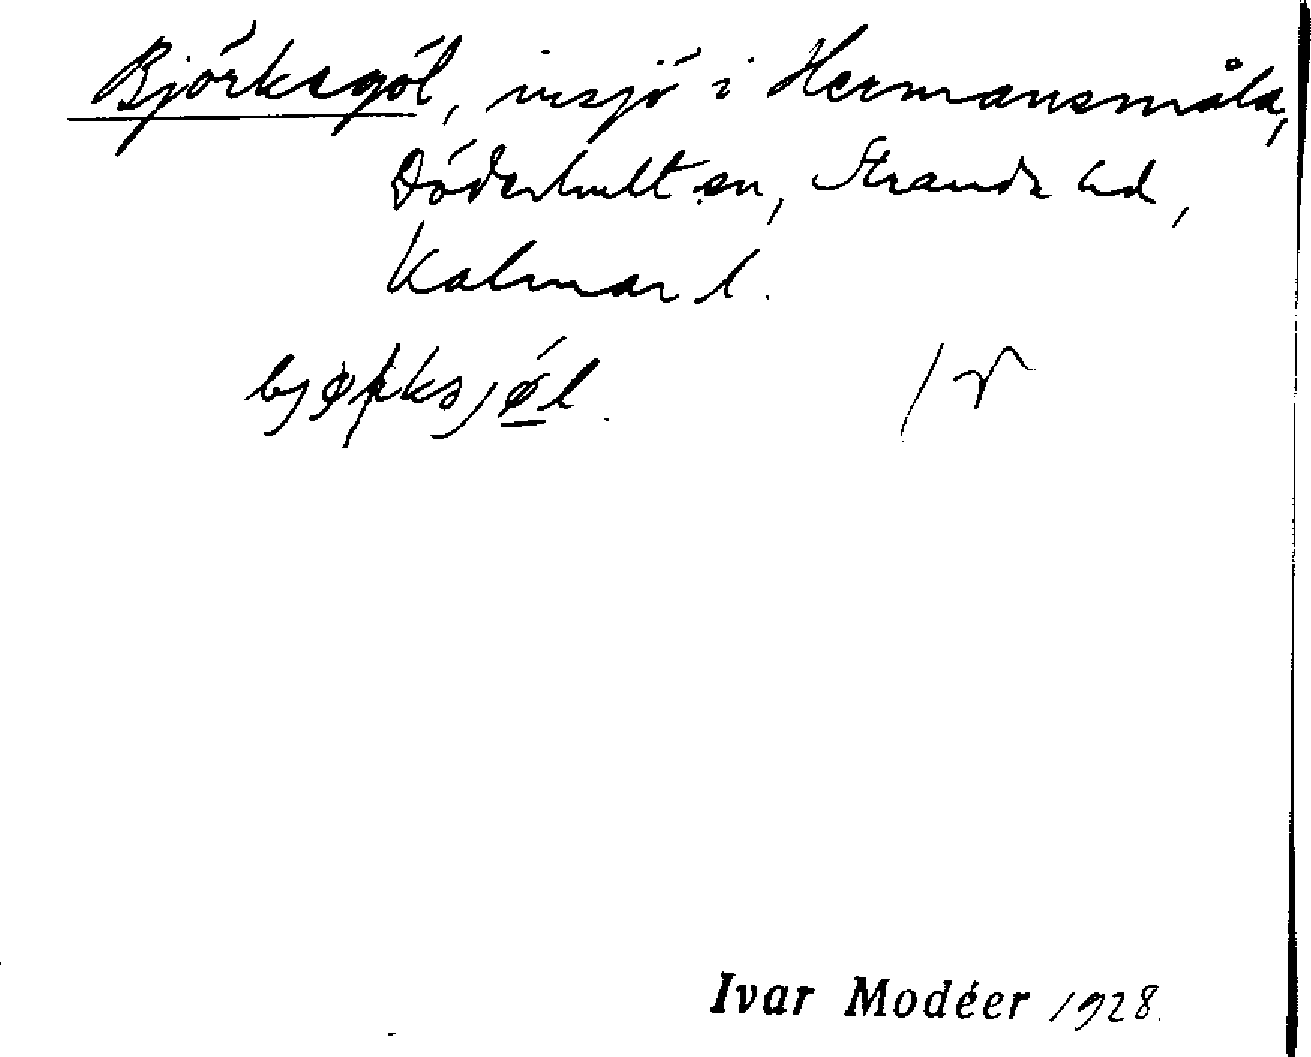 Björksgöl, insjö i Hermansmåla,
Döderhult sn, Stranda hd,
Kalmar l.
Ivar Modéer 1928.